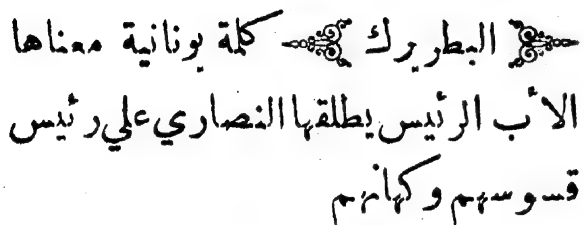 البطريرك كلمة يونانية معناها
الأب الرئيس يطلقها النصاري علي رئيس
قسوسهم وكهانهم